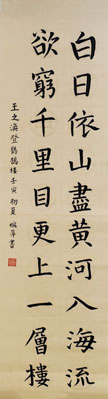 白日依山盡黃河入海流
欲窮千里目更上一層樓
王之渙登鸛鵲樓壬寅初夏
書